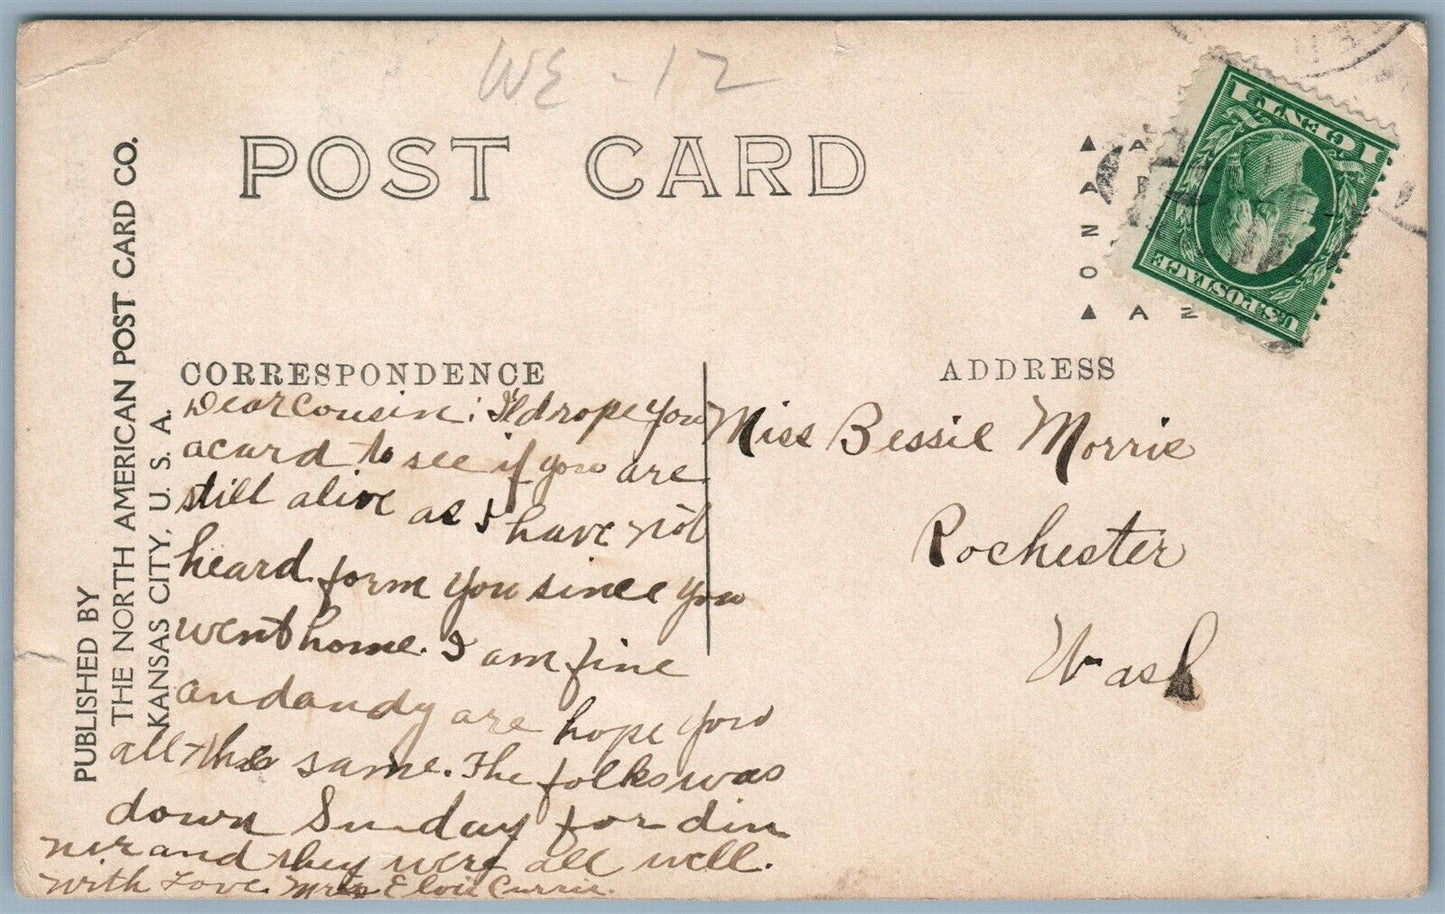 WE - 12
POST CARD
1 CENT 1
U.S. POSTAGE
PUBLISHED BY
THE NORTH AMERICAN POST CARD CO.
KANSAS CITY, U. S. A.
CORRESPONDENCE
Dear Cousin: I'l drope you
a card to see if you are
still alive as I have not
heard form you since you
went home. I am fine
and andy are hope you
all the same. The folks was
down Sunday for din
ner and they were all well.
With Love. Mrs Currier.
ADDRESS
Miss Bessie Morris
Rochester
Wash